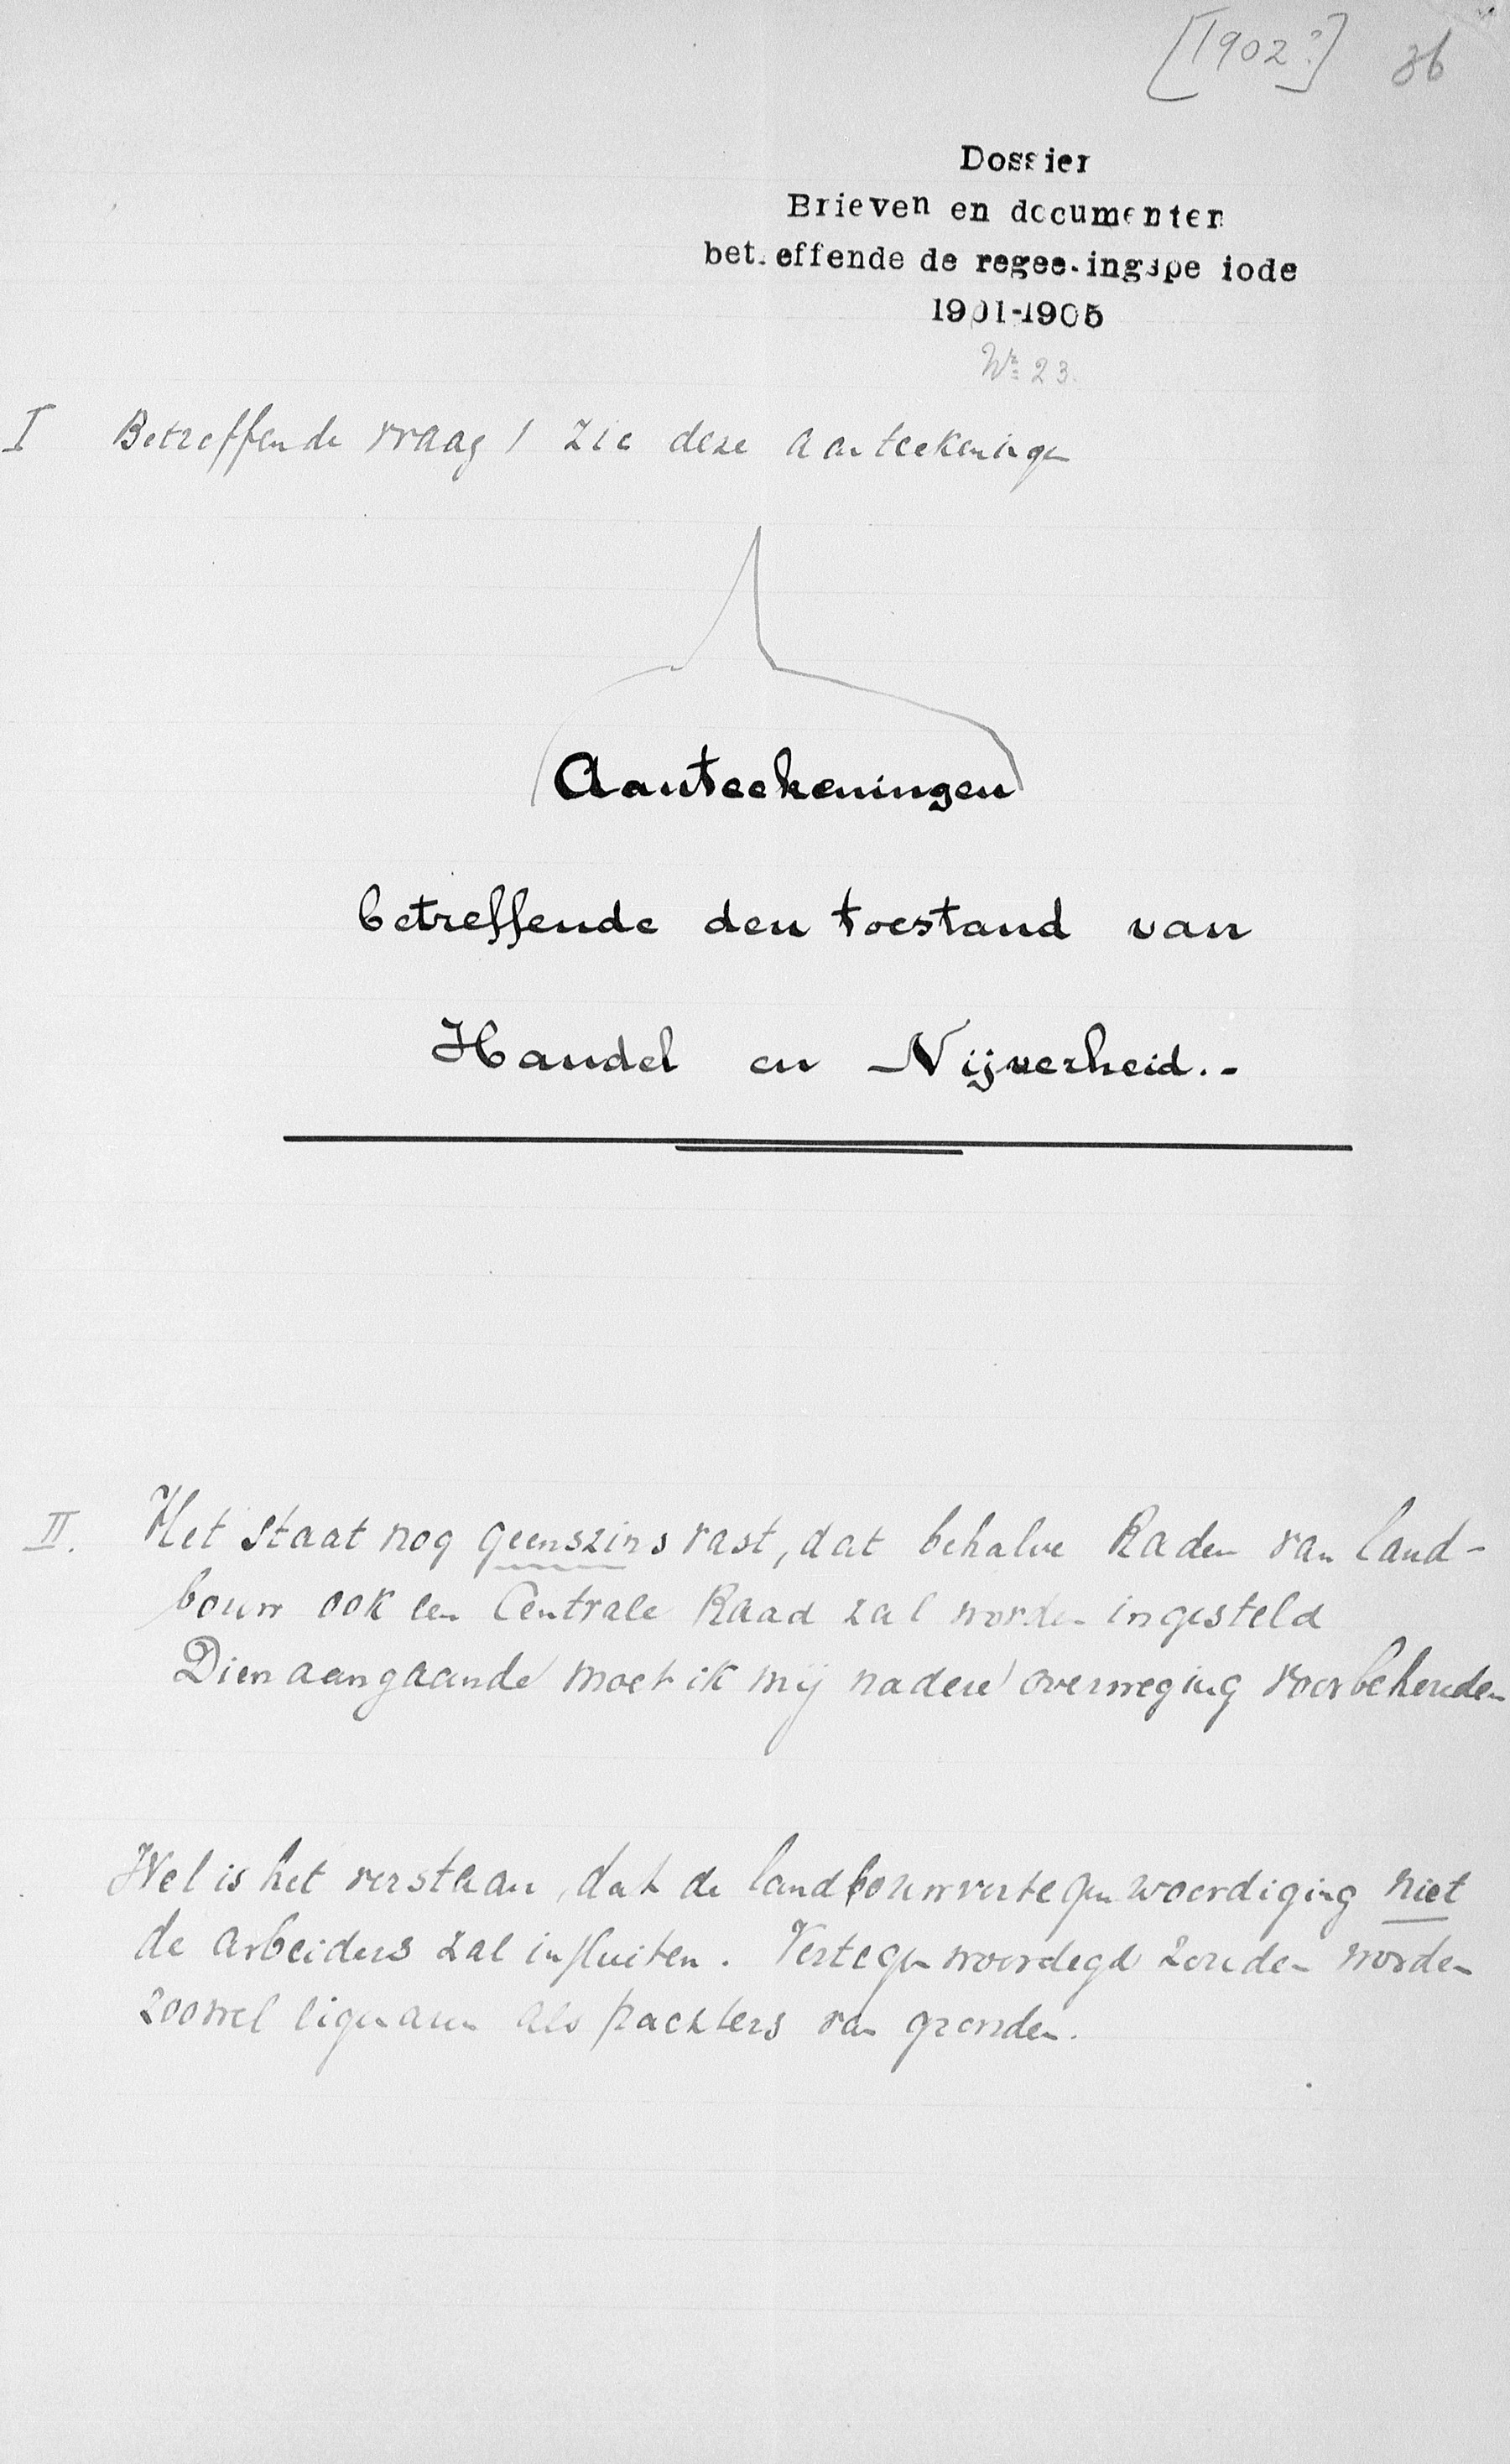 [1902?] 36
Dossier
Brieven en documenten
betreffende de regeeringsperiode
1901-1905
Nr. 23.
I Betreffende vraag 1 zie deze aanteekeningen
Aanteekeningen
betreffende den toestand van
Handel en Nijverheid.-
II. Het staat nog geenszins vast, dat behalve Raden van Land-
bouw ook een Centrale Raad zal worden ingesteld
Dienaangaande moet ik mij nadere overweging voorbehouden
Wel is het verstaan, dat de landbouwvertegenwoordiging niet
de arbeiders zal insluiten. Vertegenwoordigd zouden worden
zoowel eigenaren als pachters van gronden.